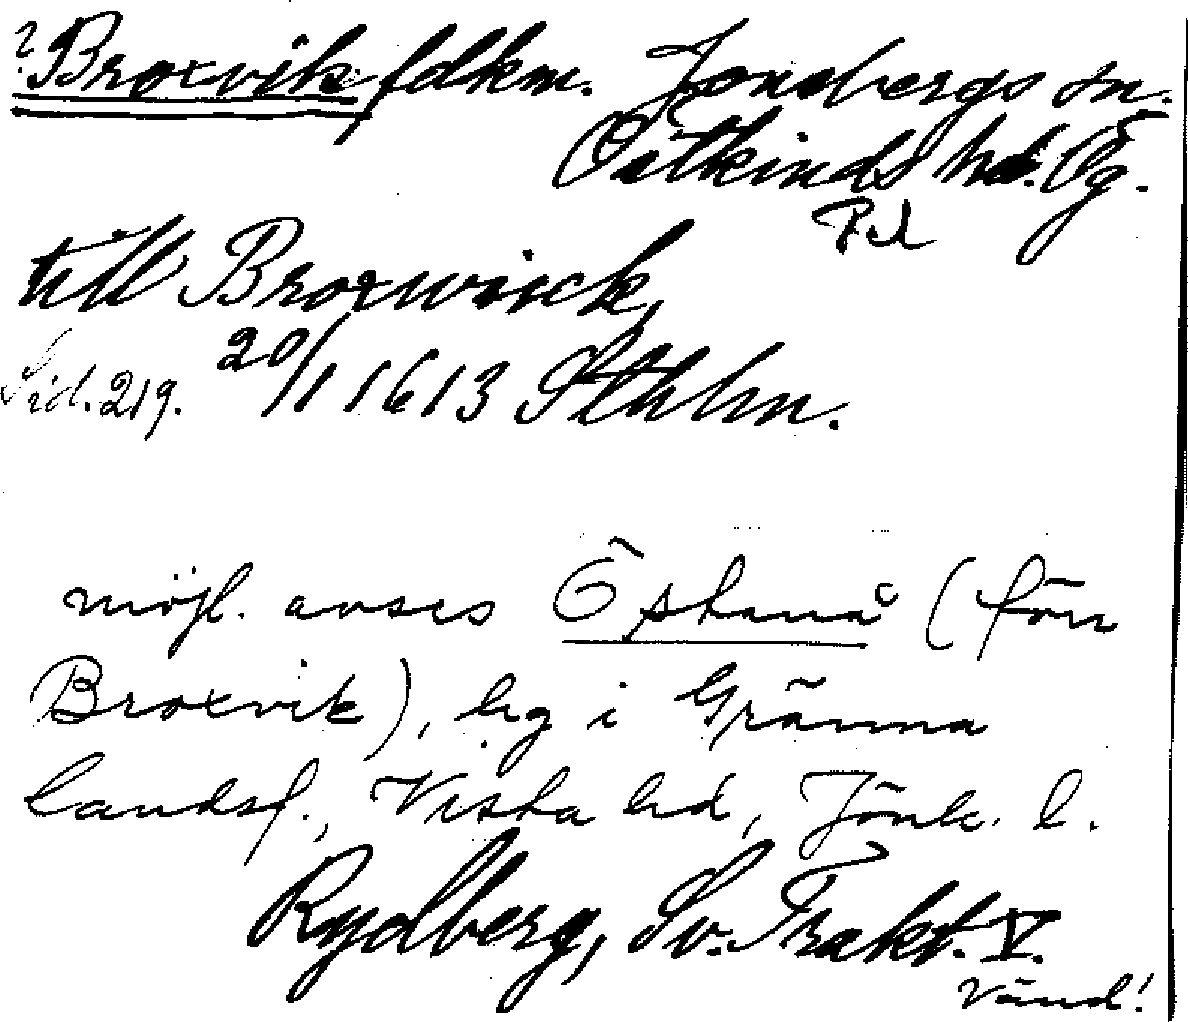 ? Broxvik, fdkm. Jonsbergs sn.
Östkinds hd. Ög.
till Broxwick
Sid. 219. 20/1 1613 Sthlm.
möjl. avses Östanå (förr
Broxvik), hg i Gränna
landsf., Vista hd, Jönk. l.
Rydberg, Sv. Trakt. V.
Vänd!